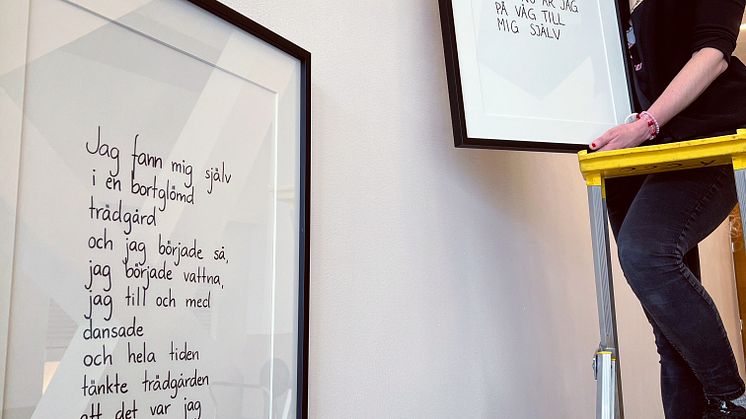 Jag fann mig själv
i en bortglömd
trädgård
och jag började så,
jag började vattna,
jag till och med
dansade
och hela tiden
tänkte trädgården
att det var jag
ÄR JAG
PÅ VÄG TILL
MIG SJÄLV